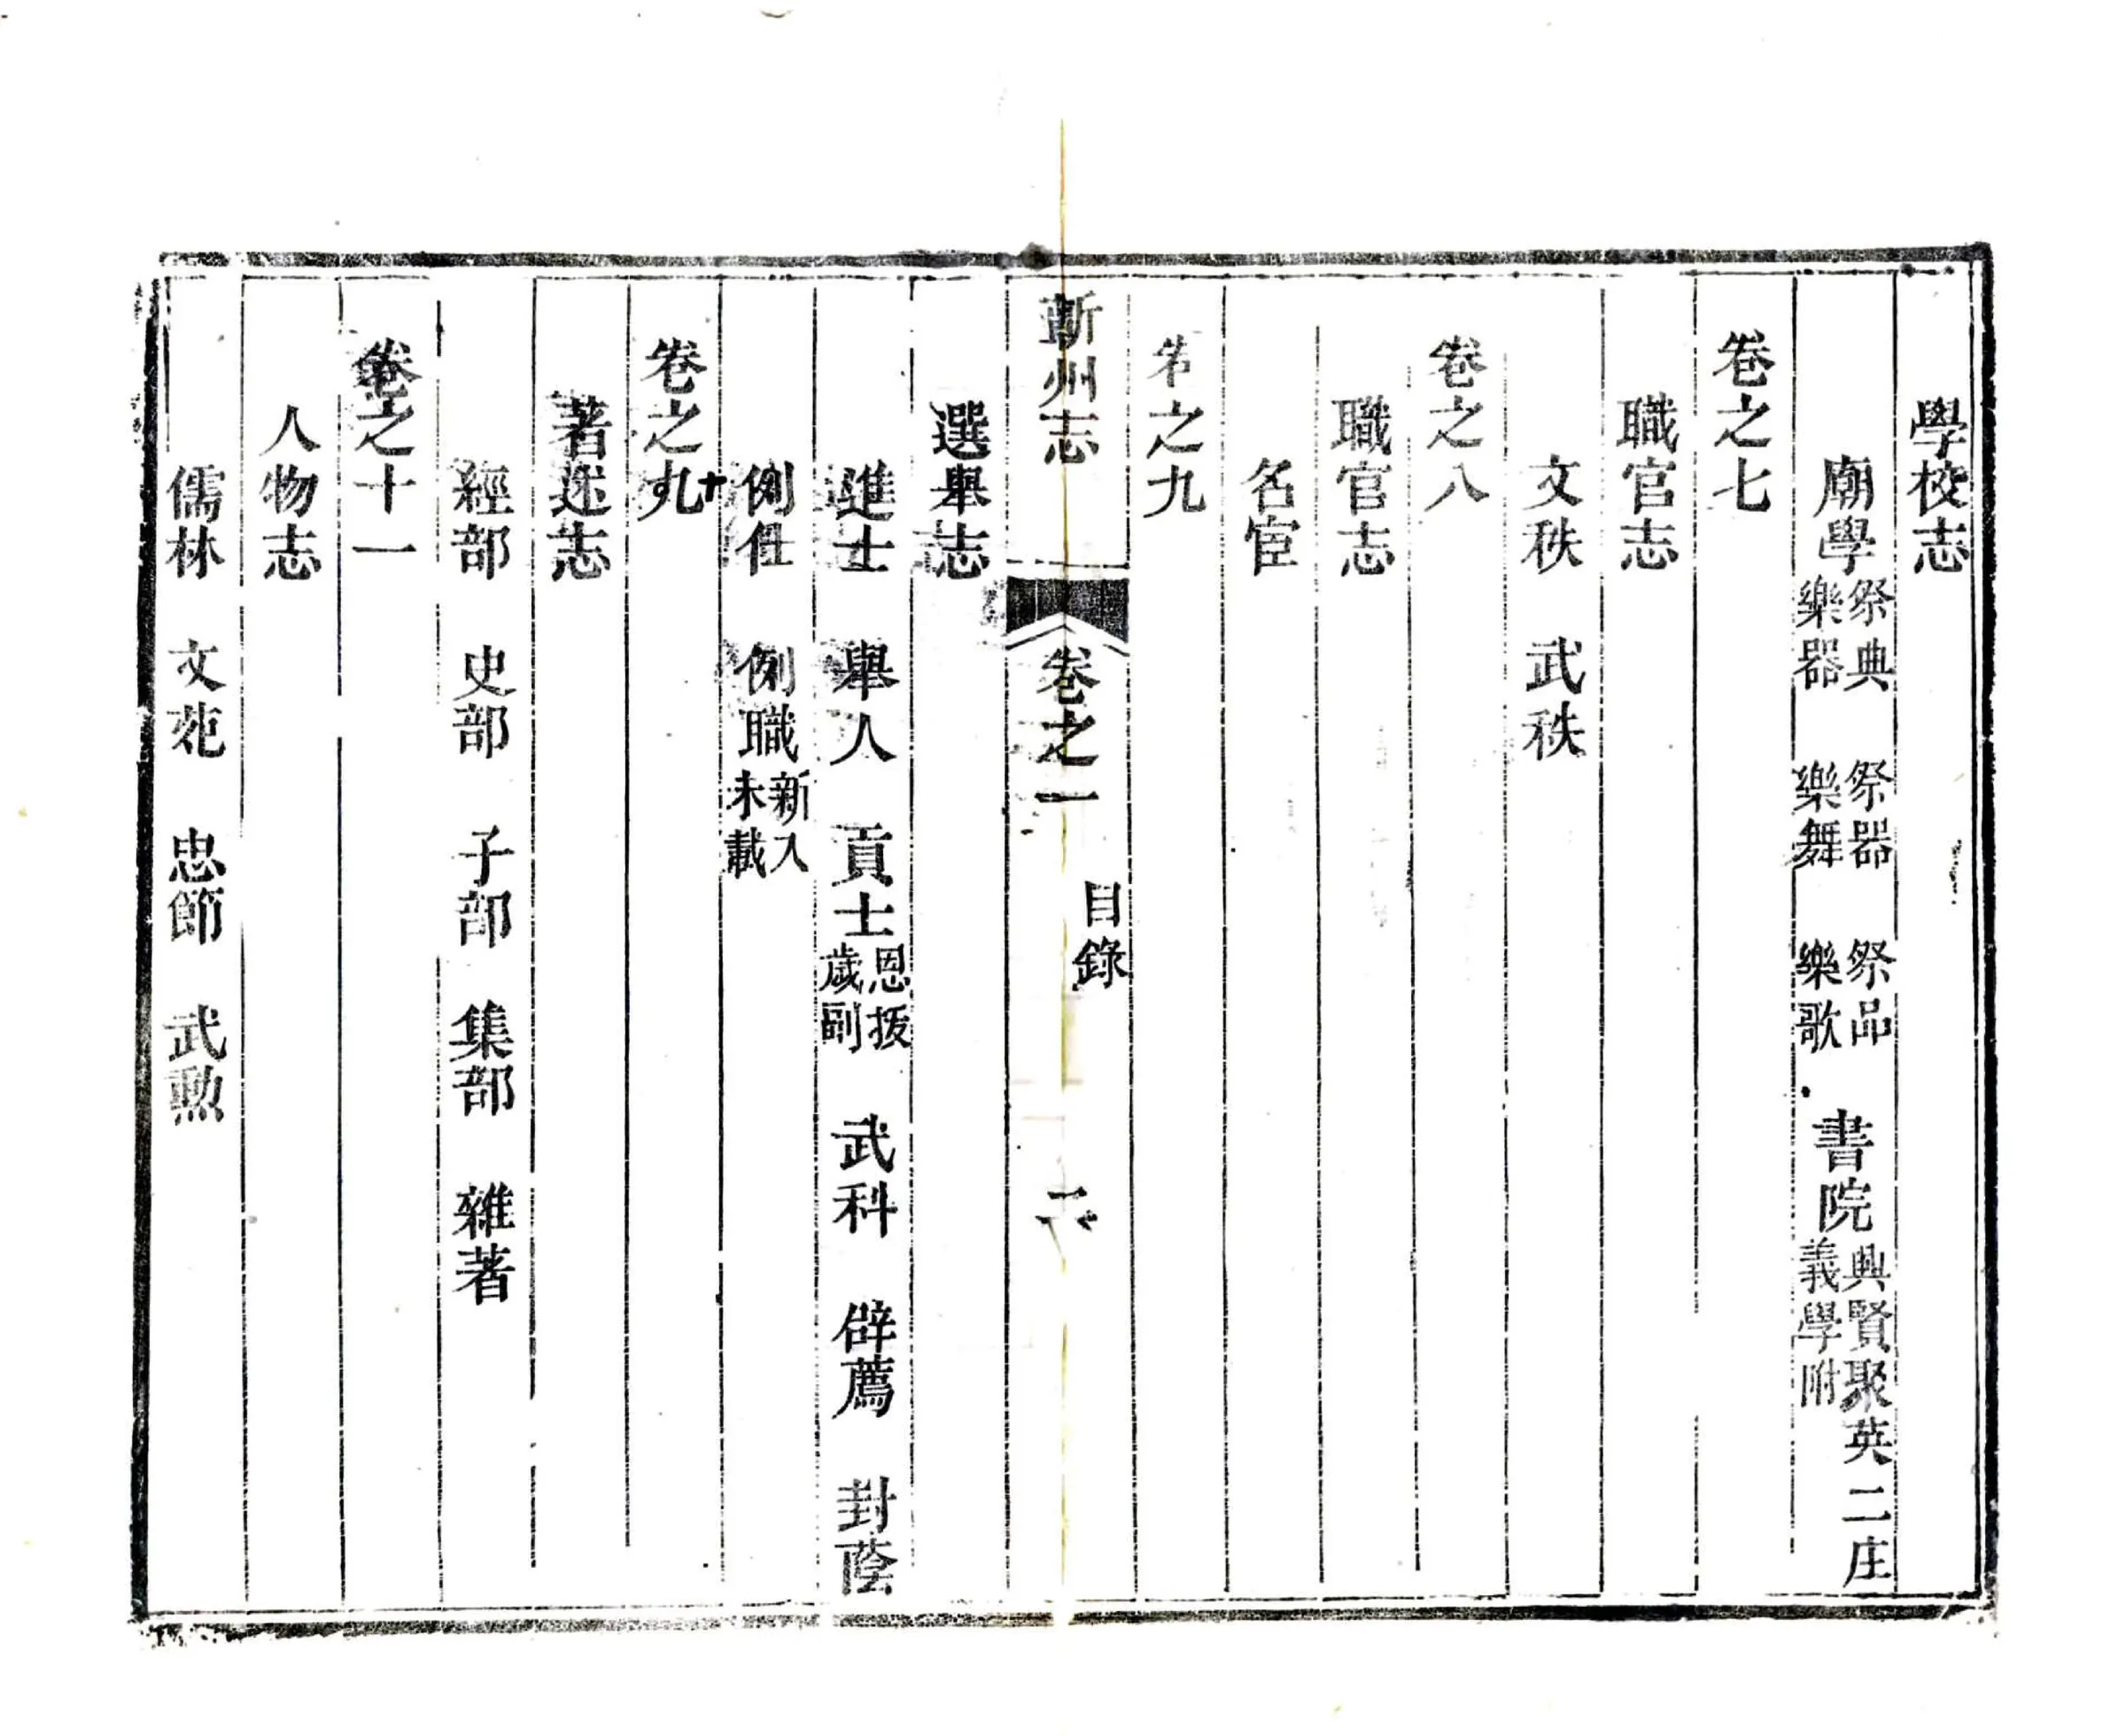 學校志
廟學祭典 祭器 祭品樂器 樂舞 樂歌 書院興賢聚英二庄義學附
卷之七
職官志
文秩 武秩
卷之八
職官志
名宦
卷之九
蘄州志 卷之一 目錄 六
選舉志
進士 舉人 貢士恩拔歲副 武科 辟薦 封蔭
例仕 例職新入未載
卷之九十
著述志
經部 史部 子部 集部 雜著
卷之十一
人物志
儒林 文苑 忠節 武勲